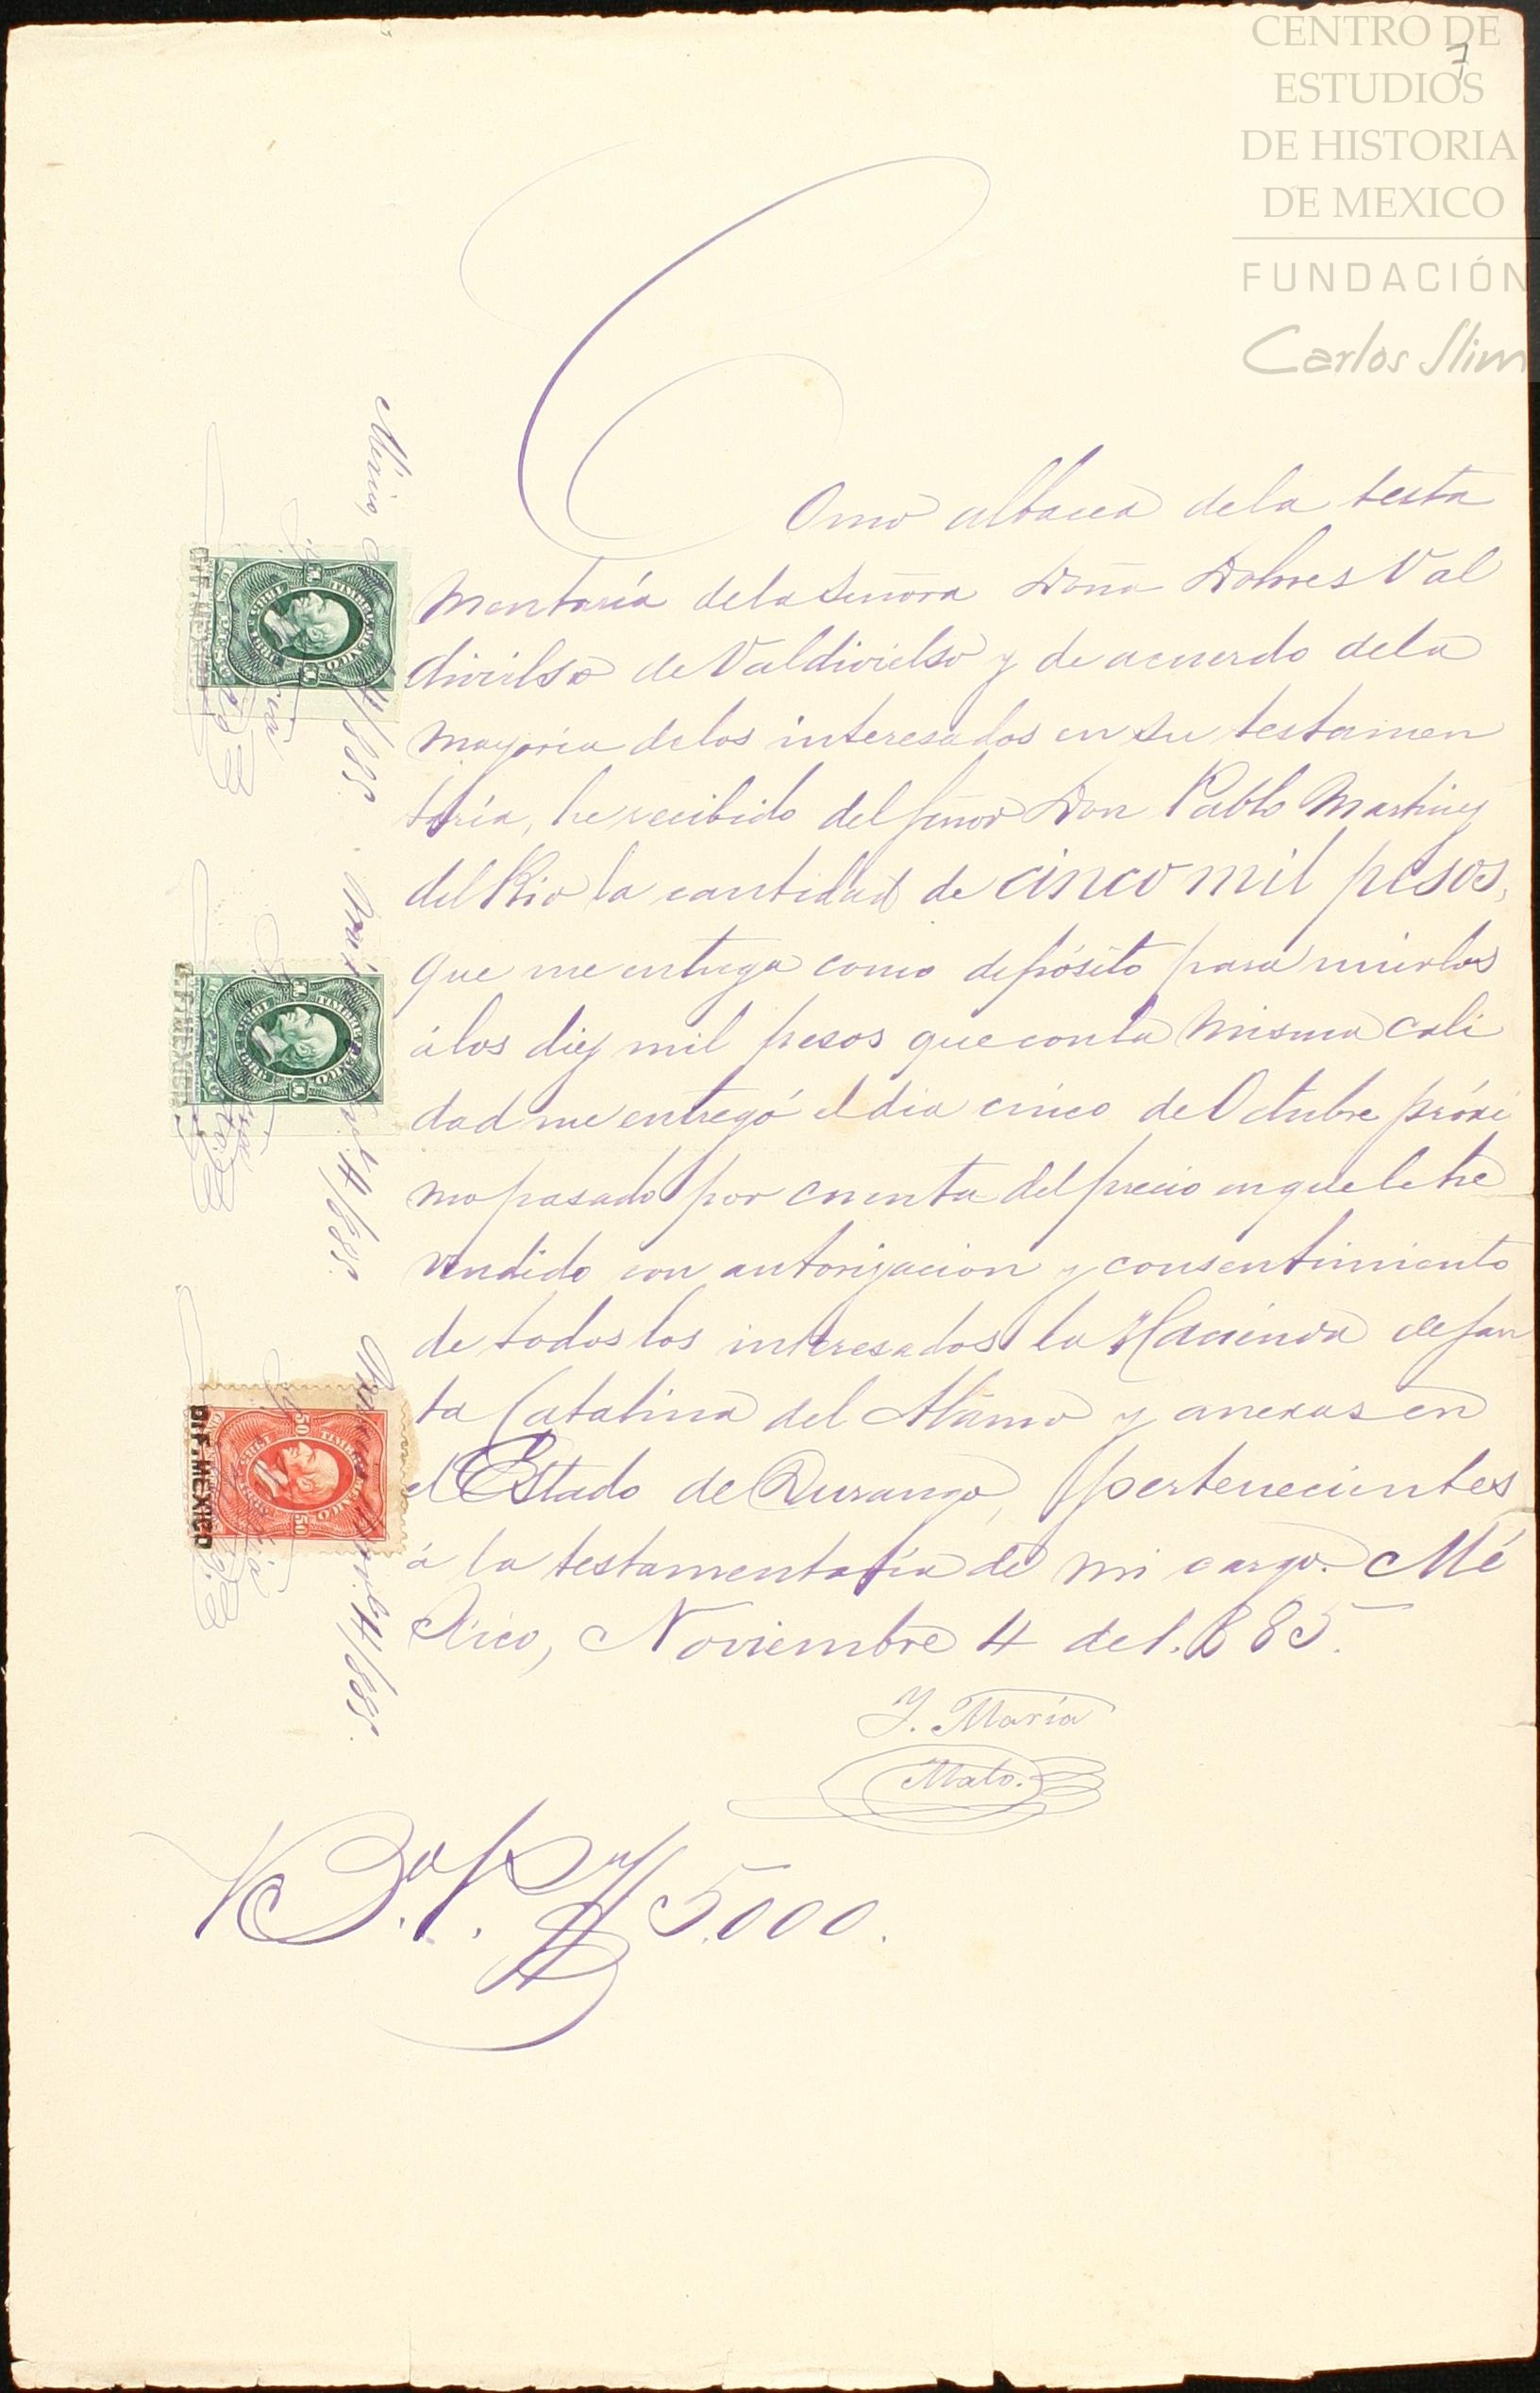 CENTRO DE
ESTUDIOS
DE HISTORIA
DE MEXICO
FUNDACIÓN
Carlos Slim
7
Como albacea de la testa
mentaría de la Señora Doña Dolores Val
divielso de Valdivielso y de acuerdo de la
mayoría de los interesados en su testamen
taría, he recibido del Señor Don Pablo Martinez
del Rio la cantidad de cinco mil pesos,
que me entrega como depósito para unirlos
á los diez mil pesos que con la misma cali
dad me entregó el dia cinco de Octubre próxi
mo pasado por cuenta del precio en que le he
vendido con autorizacion y consentimiento
de todos los interesados la Hacienda de San
ta Catalina del Alamo y anexas en
el Estado de Durango, pertenecientes
á la testamentaría de mi cargo. Mé
xico, Noviembre 4 de 1.885.
J. María
Mato.
5.000.
México, 4/885.
TIMBRE MEXICO
UN PESO
DIF. MEXICO
México Nov. 4/885.
TIMBRE MEXICO
UN PESO
DIF. MEXICO
México Nov. 4/885.
TIMBRE MEXICO
50
50
DIF. MEXICO